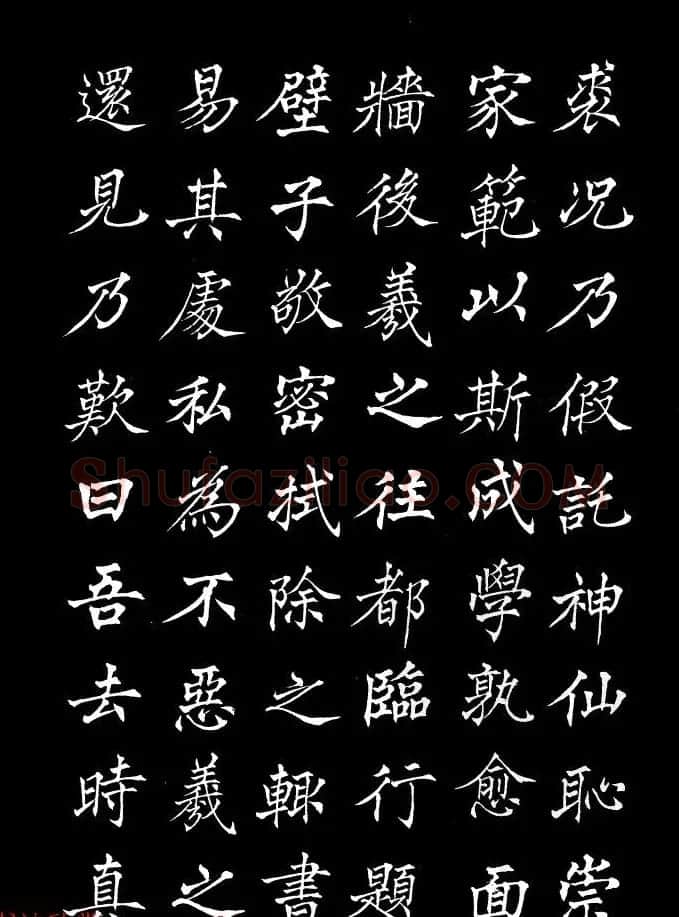 裘况乃假託神仙恥崇
家範以斯成學孰愈面
牆後羲之往都臨行題
壁子敬密拭除之輒書
易其處私為不惡羲之
還見乃歎曰吾去時真
Shufaziliao.COM